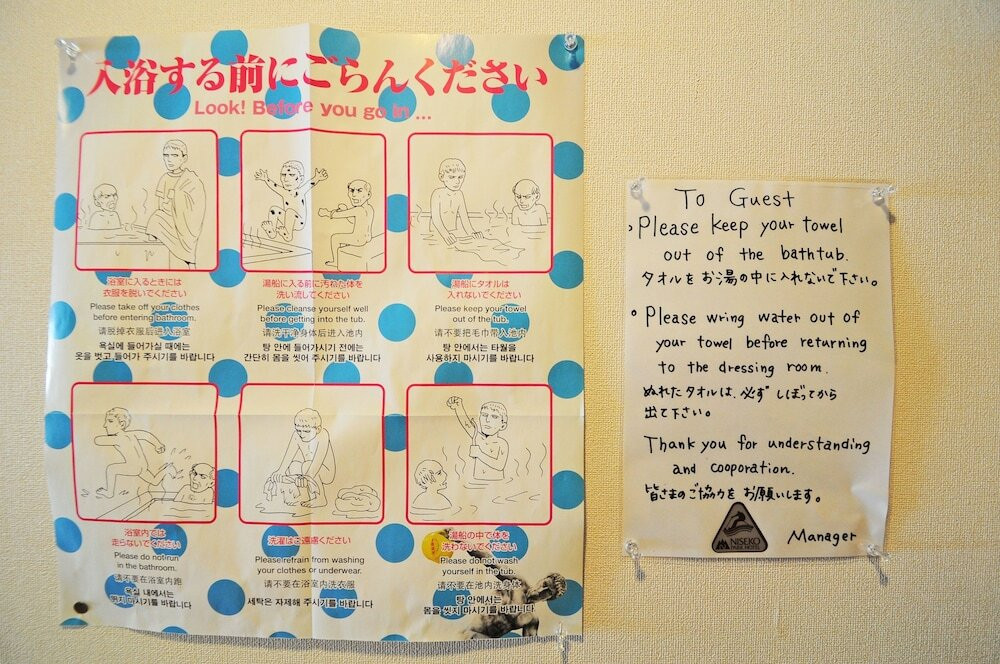 入浴する前にごらんください
Look! Before you go in ...
浴室に入るときには
衣服を脱いでください
Please take off your clothes
before entering bathroom.
请脱掉衣服后进入浴室
욕실에 들어가실 때에는
옷을 벗고 들어가 주시기를 바랍니다
湯船に入る前に汚れた体を
洗い流してください
Please cleanse yourself well
before getting into the tub.
请洗干净身体后进入池内
탕 안에 들어가시기 전에는
간단히 몸을 씻어 주시기를 바랍니다
湯船にタオルは
入れないでください
Please keep your towel
out of the tub.
请不要把毛巾带入池内
탕 안에서는 타월을
사용하지 마시기를 바랍니다
浴室内では
走らないでください
Please do not run
in the bathroom.
请不要在浴室内跑
욕실 내에서는
뛰지 마시기를 바랍니다
洗濯はご遠慮ください
Please refrain from washing
your clothes or underwear.
请不要在浴室内洗衣服
세탁은 자제해 주시기를 바랍니다
湯船の中で体を
洗わないでください
Please do not wash
yourself in the tub.
请不要在池内洗身体
탕 안에서는
몸을 씻지 마시기를 바랍니다
To Guest
Please keep your towel
out of the bathtub.
タオルをお湯の中に入れないで下さい。
Please wring water out of
your towel before returning
to the dressing room.
ぬれたタオルは、必ずしぼってから
出て下さい。
Thank you for understanding
and cooporation.
皆さまのご協力をお願いします。
NISEKO
PARK HOTEL
Manager